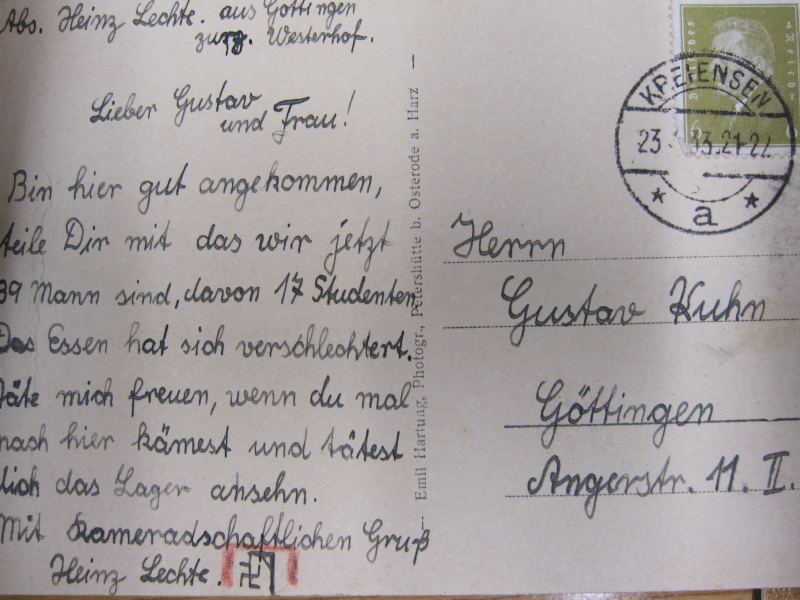 Abs. Heinz Lechte. aus Göttingen
zurz. Westerhof.
Lieber Gustav
und Frau!
Bin hier gut angekommen,
teile Dir mit das wir jetzt
39 Mann sind, davon 17 Studenten
Das Essen hat sich verschlechtert.
täte mich freuen, wenn du mal
nach hier kämest und tätest
dich das Lager ansehn.
Mit Kameradschaftlichen Gruß
Heinz Lechte. 卍
— Emil Hartung, Photogr., Petershütte b. Osterode a. Harz —
KREIENSEN
23 33.21-22
* a *
Herrn
Gustav Kuhn
Göttingen
Angerstr. 11. II.